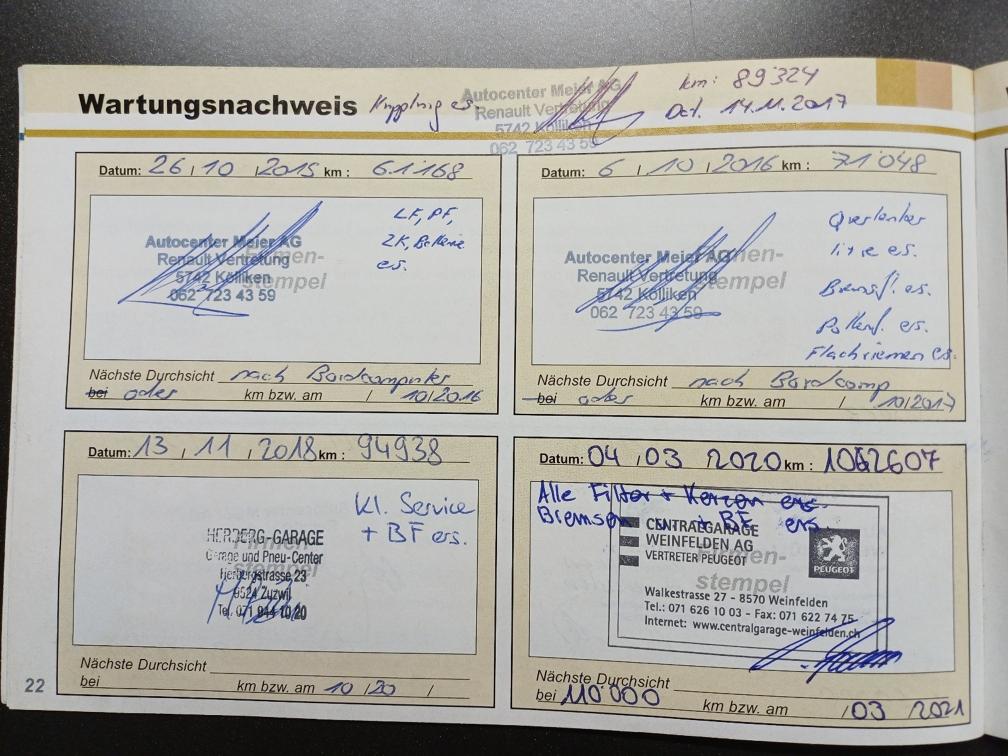 Wartungsnachweis Kupplung es.
Autocenter Meier AG
Renault Vertretung
5742 Kölliken
062 723 43 59
km: 89324
Dat. 14.11.2017
Datum: 26 / 10 / 2015 km: 61'168
LF, PF,
ZK, Batterie
es.
Autocenter Meier AG
Renault Vertretung
5742 Kölliken
062 723 43 59
Firmen-
stempel
Nächste Durchsicht nach Bordcomputer
bei oder km bzw. am / 10/2016
Datum: 6 / 10 / 2016 km: 71'048
Querlenker
li+re es.
Bremsf. es.
Pollenf. es.
Flachriemen es.
Autocenter Meier AG
Renault Vertretung
5742 Kölliken
062 723 43 59
Firmen-
stempel
Nächste Durchsicht nach Bordcomp
bei oder km bzw. am / 10/2017
Datum: 13 / 11 / 2018 km: 94938
Kl. Service
+ BF ers.
HERBERG-GARAGE
Garage und Pneu-Center
Herbergstrasse 23
9524 Zuzwil
Tel. 071 944 10 20
Firmen-
stempel
Nächste Durchsicht
bei km bzw. am 10 / 20 /
Datum: 04 / 03 / 2020 km:
Alle Filter + Kerzen ers.
Bremsen + BF ers.
CENTRALGARAGE
WEINFELDEN AG
VERTRETER PEUGEOT
PEUGEOT
Firmen-
stempel
Walkestrasse 27 - 8570 Weinfelden
Tel.: 071 626 10 03 - Fax: 071 622 74 75
Internet: www.centralgarage-weinfelden.ch
Nächste Durchsicht
bei 110'000 km bzw. am / 03 / 2021
22